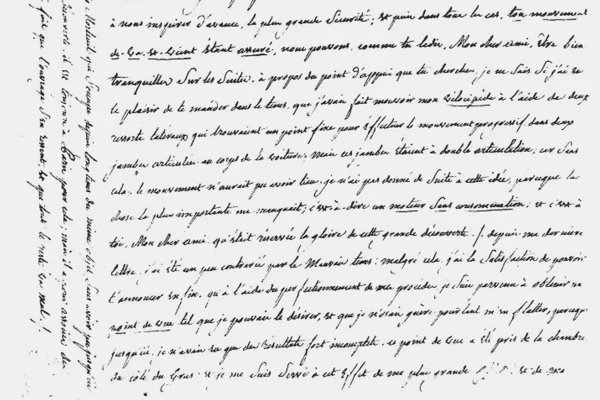 à nous inspirer d'avance, la plus grande Sécurité; et puis dans tous les cas, ton mouvement
de-va-et-vient étant assuré, nous pouvons, comme tu le dis, Mon cher ami, être bien
tranquilles sur les suites. à propos du point d'appui que tu cherches, je ne sais si j'ai eu
le plaisir de te mander dans le tems, que j'avais fait mouvoir mon vélocipède à l'aide de deux
ressorts lateraux qui trouvaient un point fixe pour effectuer le mouvement progressif dans deux
jambes articulées au corps de la voiture; mais ces jambes étaient à double articulation; car sans
cela, le mouvement n'aurait pu avoir lieu. je n'ai pas donné de suite à cette idée, parceque la
chose la plus importante me manquait; c'est-à-dire un moteur sans consommation; et c'est à
toi, Mon cher ami, qu'était réservée la gloire de cette grande découverte. depuis ma dernière
lettre, j'ai été un peu contrarié par le Mauvais tems: malgré cela, j'ai la Satisfaction de pouvoir
t'annoncer enfin, qu'à l'aide du perfectionnement de mes procédés je suis parvenu à obtenir un
point de vue tel que je pouvais le désirer, et que je n'osais guère pourtant m'en flatter, parceque
jusqu'ici, je n'avais eu que des résultats fort incomplets. ce point de vue a été pris de ta chambre
du côté du Gras; et je me suis servi à cet effet de ma plus grande et de ma
qui s'occupe depuis longtems du même objet sans avoir pu jusqu'ici
il à Paris pour cela; mais il a
fait que l'ouvrage s'en ressent, et que tout le reste va mal!